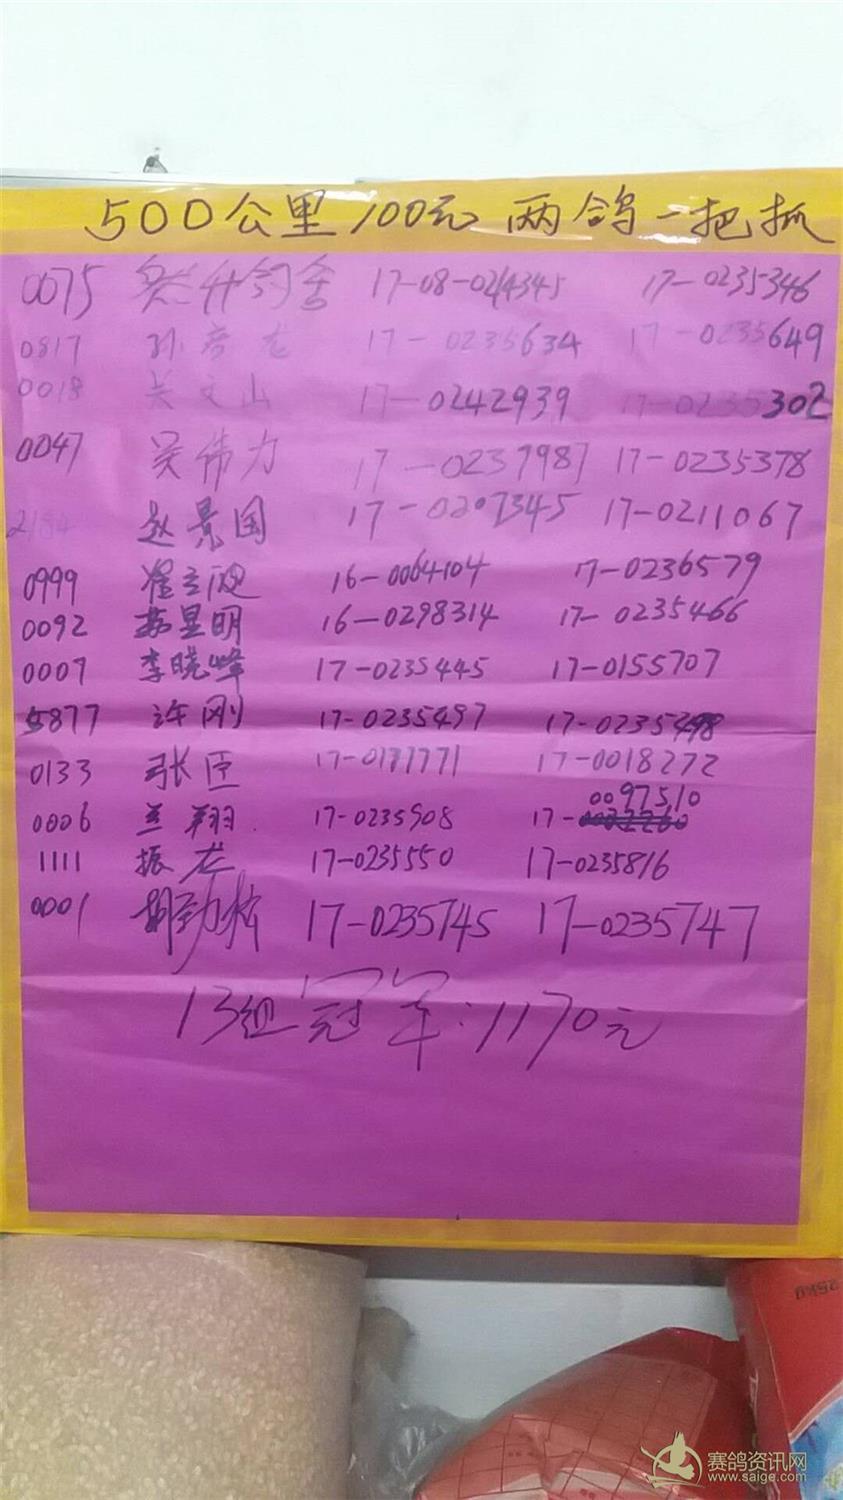 500公里100元 两鸽一把抓
0075 升鸽舍 17-08-0214345 17-0235346
0817 孙彦龙 17-0235634 17-0235649
0018 关文山 17-0242939 17-0235302
0047 吴伟力 17-0237987 17-0235378
赵景国 17-0207345 17-0211067
0999 崔立 16-0064104 17-0236579
0092 苏显明 16-0298314 17-0235466
0007 李晓峰 17-0235445 17-0155707
5877 许刚 17-0235497 17-0235498
0133 张臣 17-0171771 17-0018272
0097510
0006 兰翔 17-0235908 17-
1111 振龙 17-0235550 17-0235816
0001 胡劲松 17-0235745 17-0235747
13组冠军:1170元
25kg
赛鸽资讯网
www.saige.com